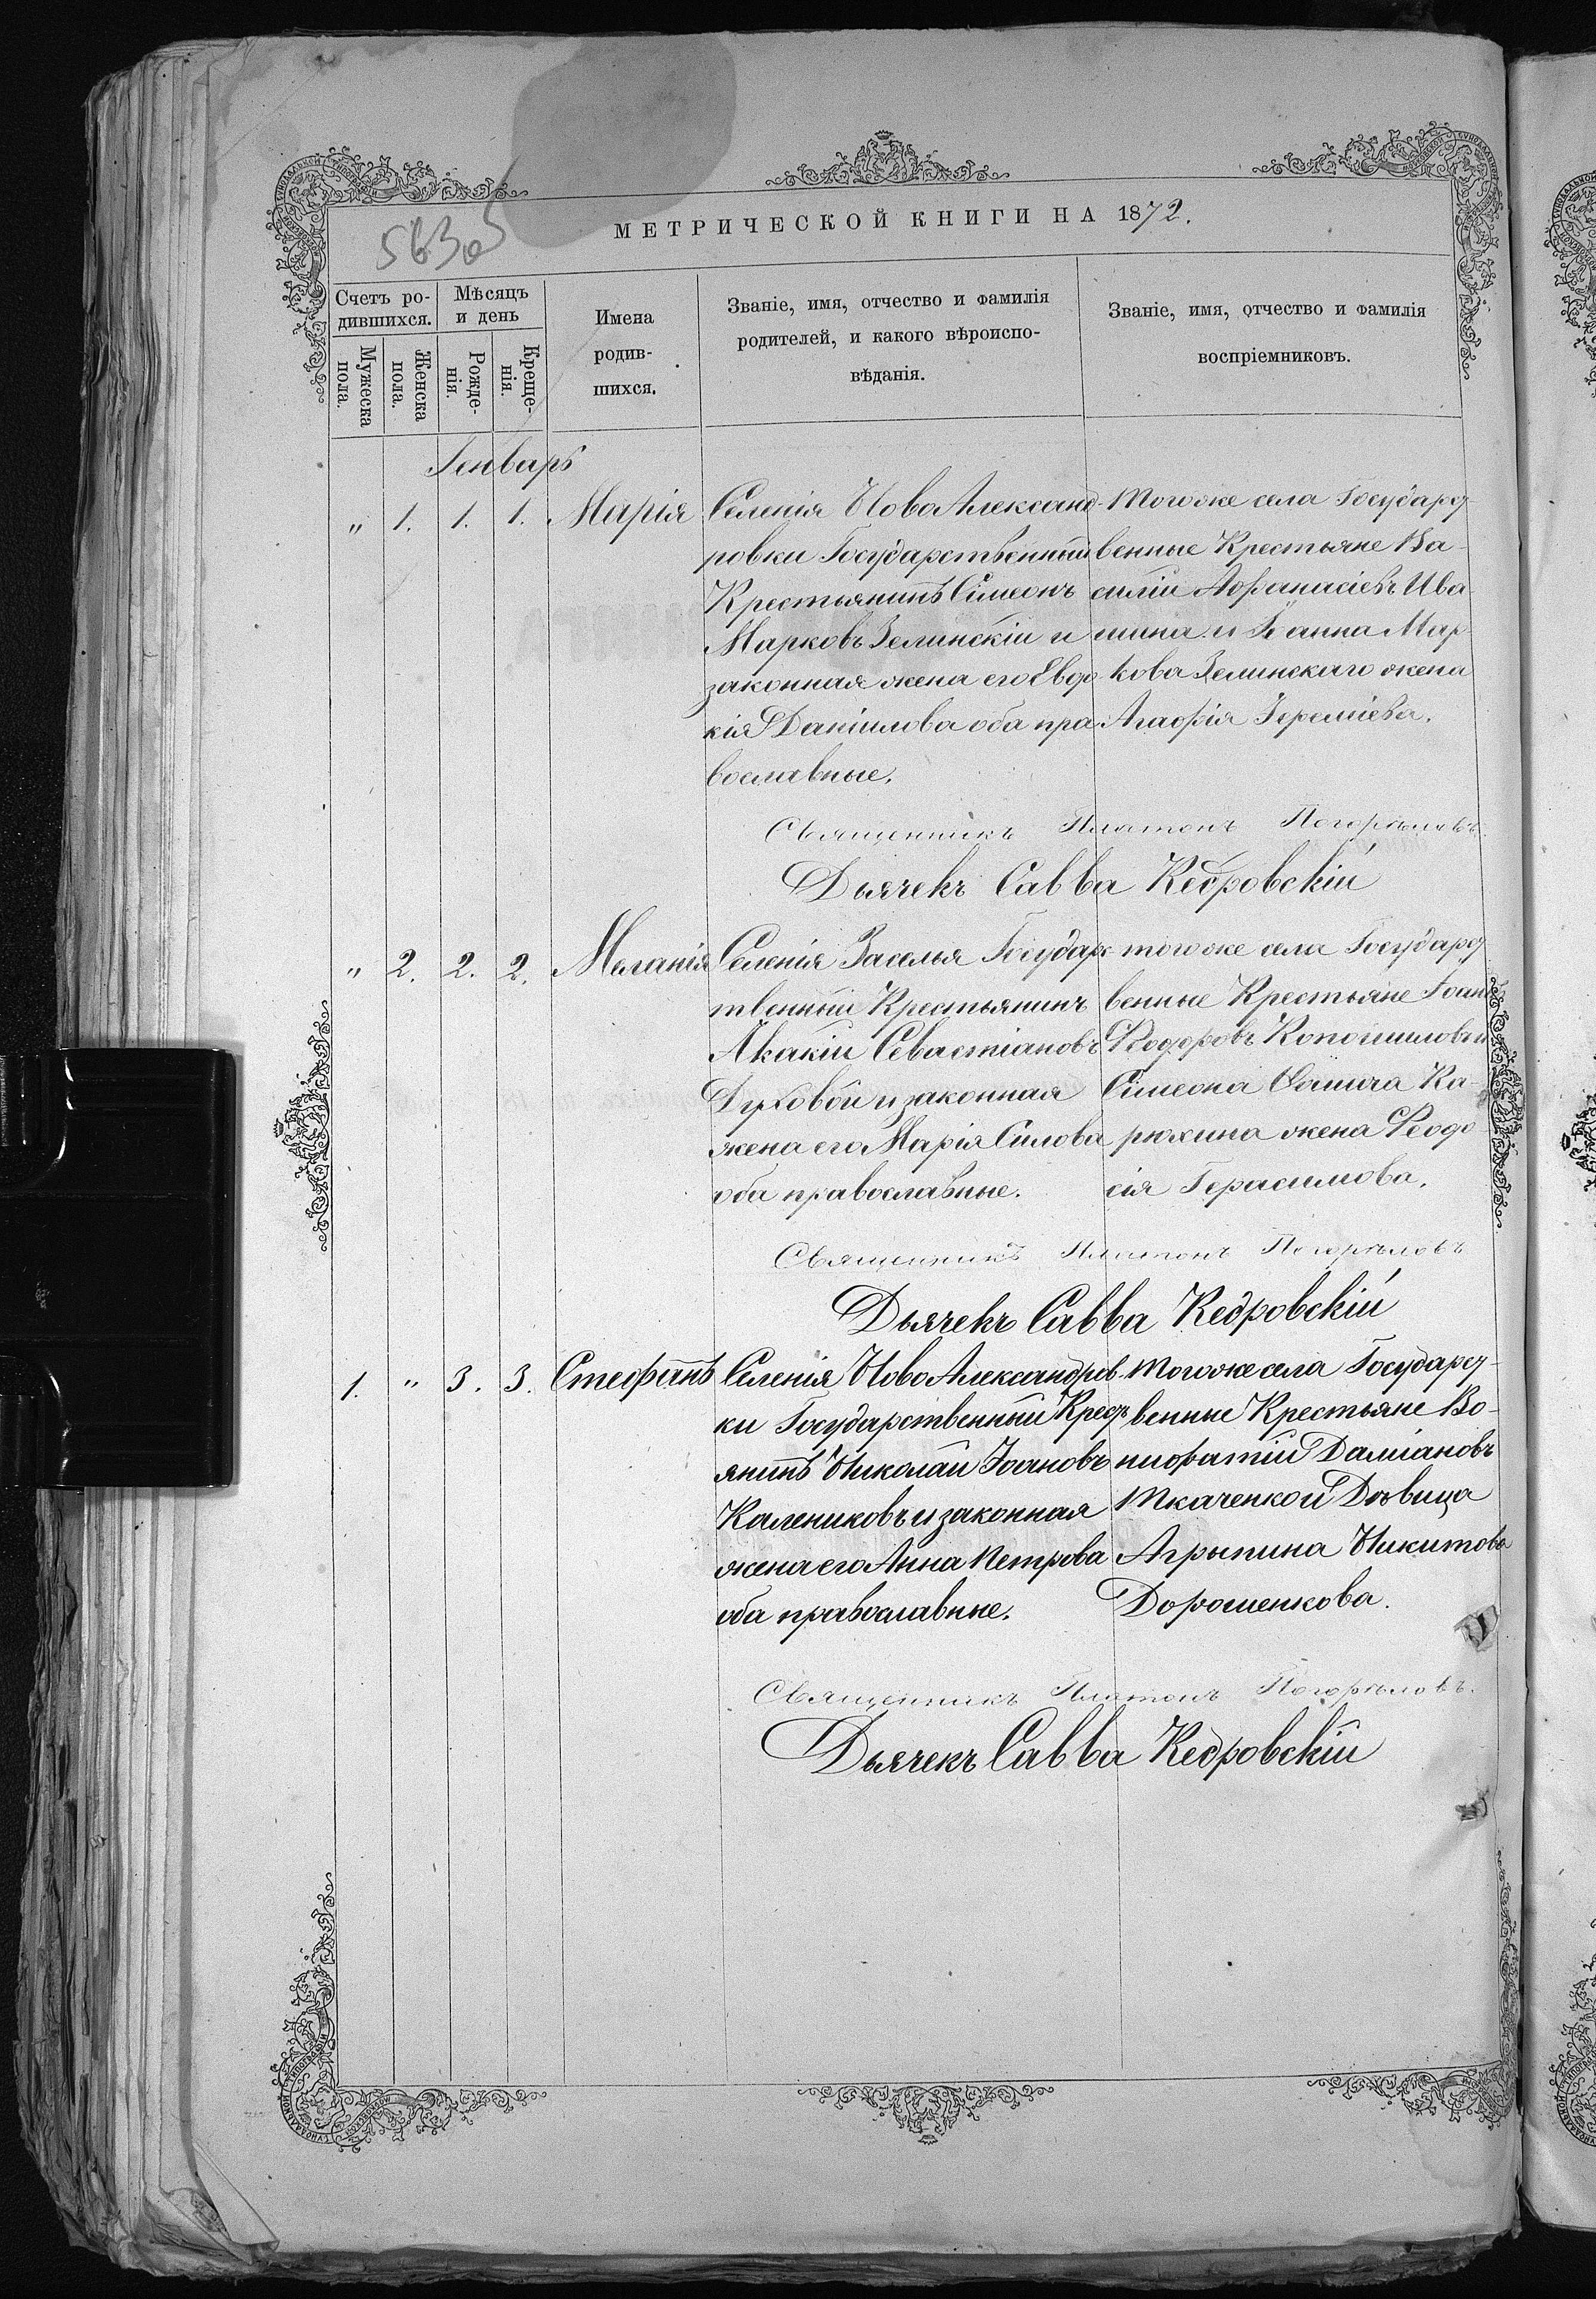 МЕТРИЧЕСКОЙ КНИГИ НА 1872.
Счетъ ро-
дившихся.
Мужеска
пола.
Женска
пола.
Мѣсяцъ
и день
Рожде-
нія.
Креще-
нія.
Имена
родив-
шихся.
Званіе, имя, отчество и фамилія
родителей, и какого вѣроиспо-
вѣданія.
Званіе, имя, отчество и фамилія
воспріемниковъ.
Генварь
„ 1. 1. 1. Марія
Селенія НовоАлександ-
ровки Государственный
Крестьянинъ Сімеонъ
Марковъ Зелинскій и
законная жена его Евдо
кія Даніилова оба пра
вославные.
Тогоже села Государст-
венные Крестьяне Ва-
силій Афанасіевъ Ива
шина и Іоанна Мар
кова Зелинскаго жена
Агафія Іереміева.
Священникъ Платонъ Погорѣловъ
Дьячекъ Савва Кедровскій
„ 2. 2. 2. Меланія
Селенія Заселья Государс
твенный Крестьянинъ
Акакій Севастіановъ
Духовой и законная
жена его Марія Силова
оба православные.
тогоже села Государст
венные Крестьяне Іоаннъ
Ѳеодоровъ
Сімеона Ѳомича Ка-
рюхина жена Ѳеодо
сія Герасимова.
Священникъ Платонъ Погорѣловъ
Дьячекъ Савва Кедровскій
1. „ 3. 3. Стефанъ
Селенія НовоАлександров-
ки Государственный Крест
янинъ Николай Іоановъ
Калениковъ и законная
жена его Анна Петрова
оба православные.
Тогоже села Государст-
венные Крестьяне Во-
нифатій Даміановъ
Ткаченкой Дѣвица
Агрыпина Никитова
Дорошенкова.
Священникъ Платонъ Погорѣловъ.
Дьячекъ Савва Кедровскій